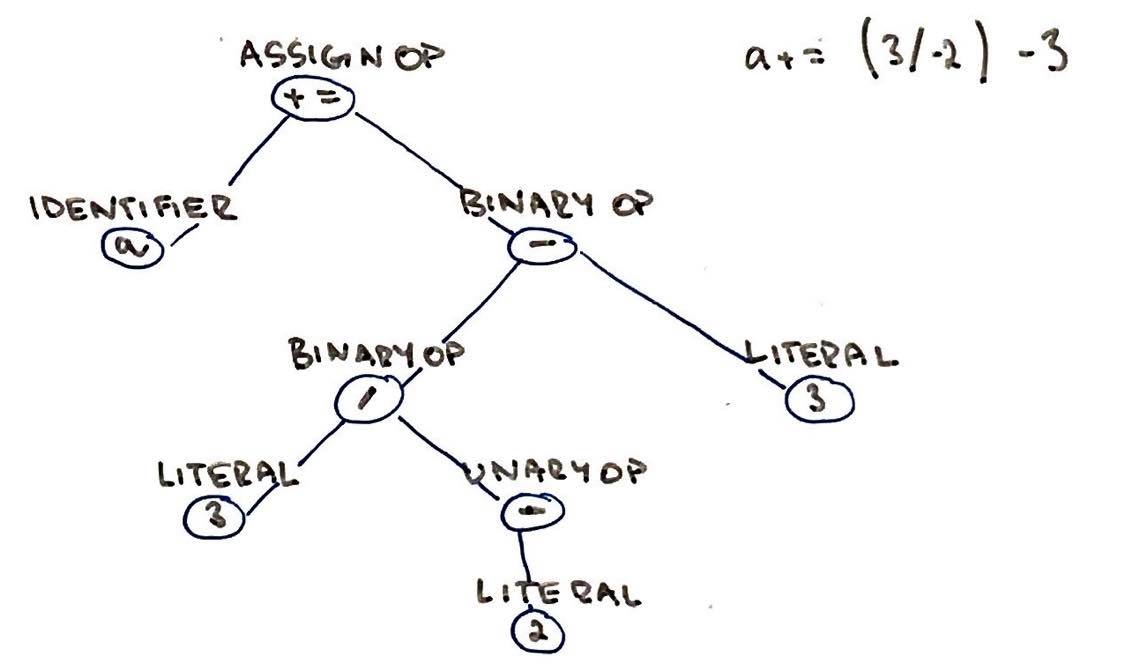 ASSIGN OP
a += (3/-2) -3
+=
IDENTIFIER
BINARY OP
a
-
BINARY OP
LITERAL
/
3
LITERAL
UNARY OP
3
-
LITERAL
2